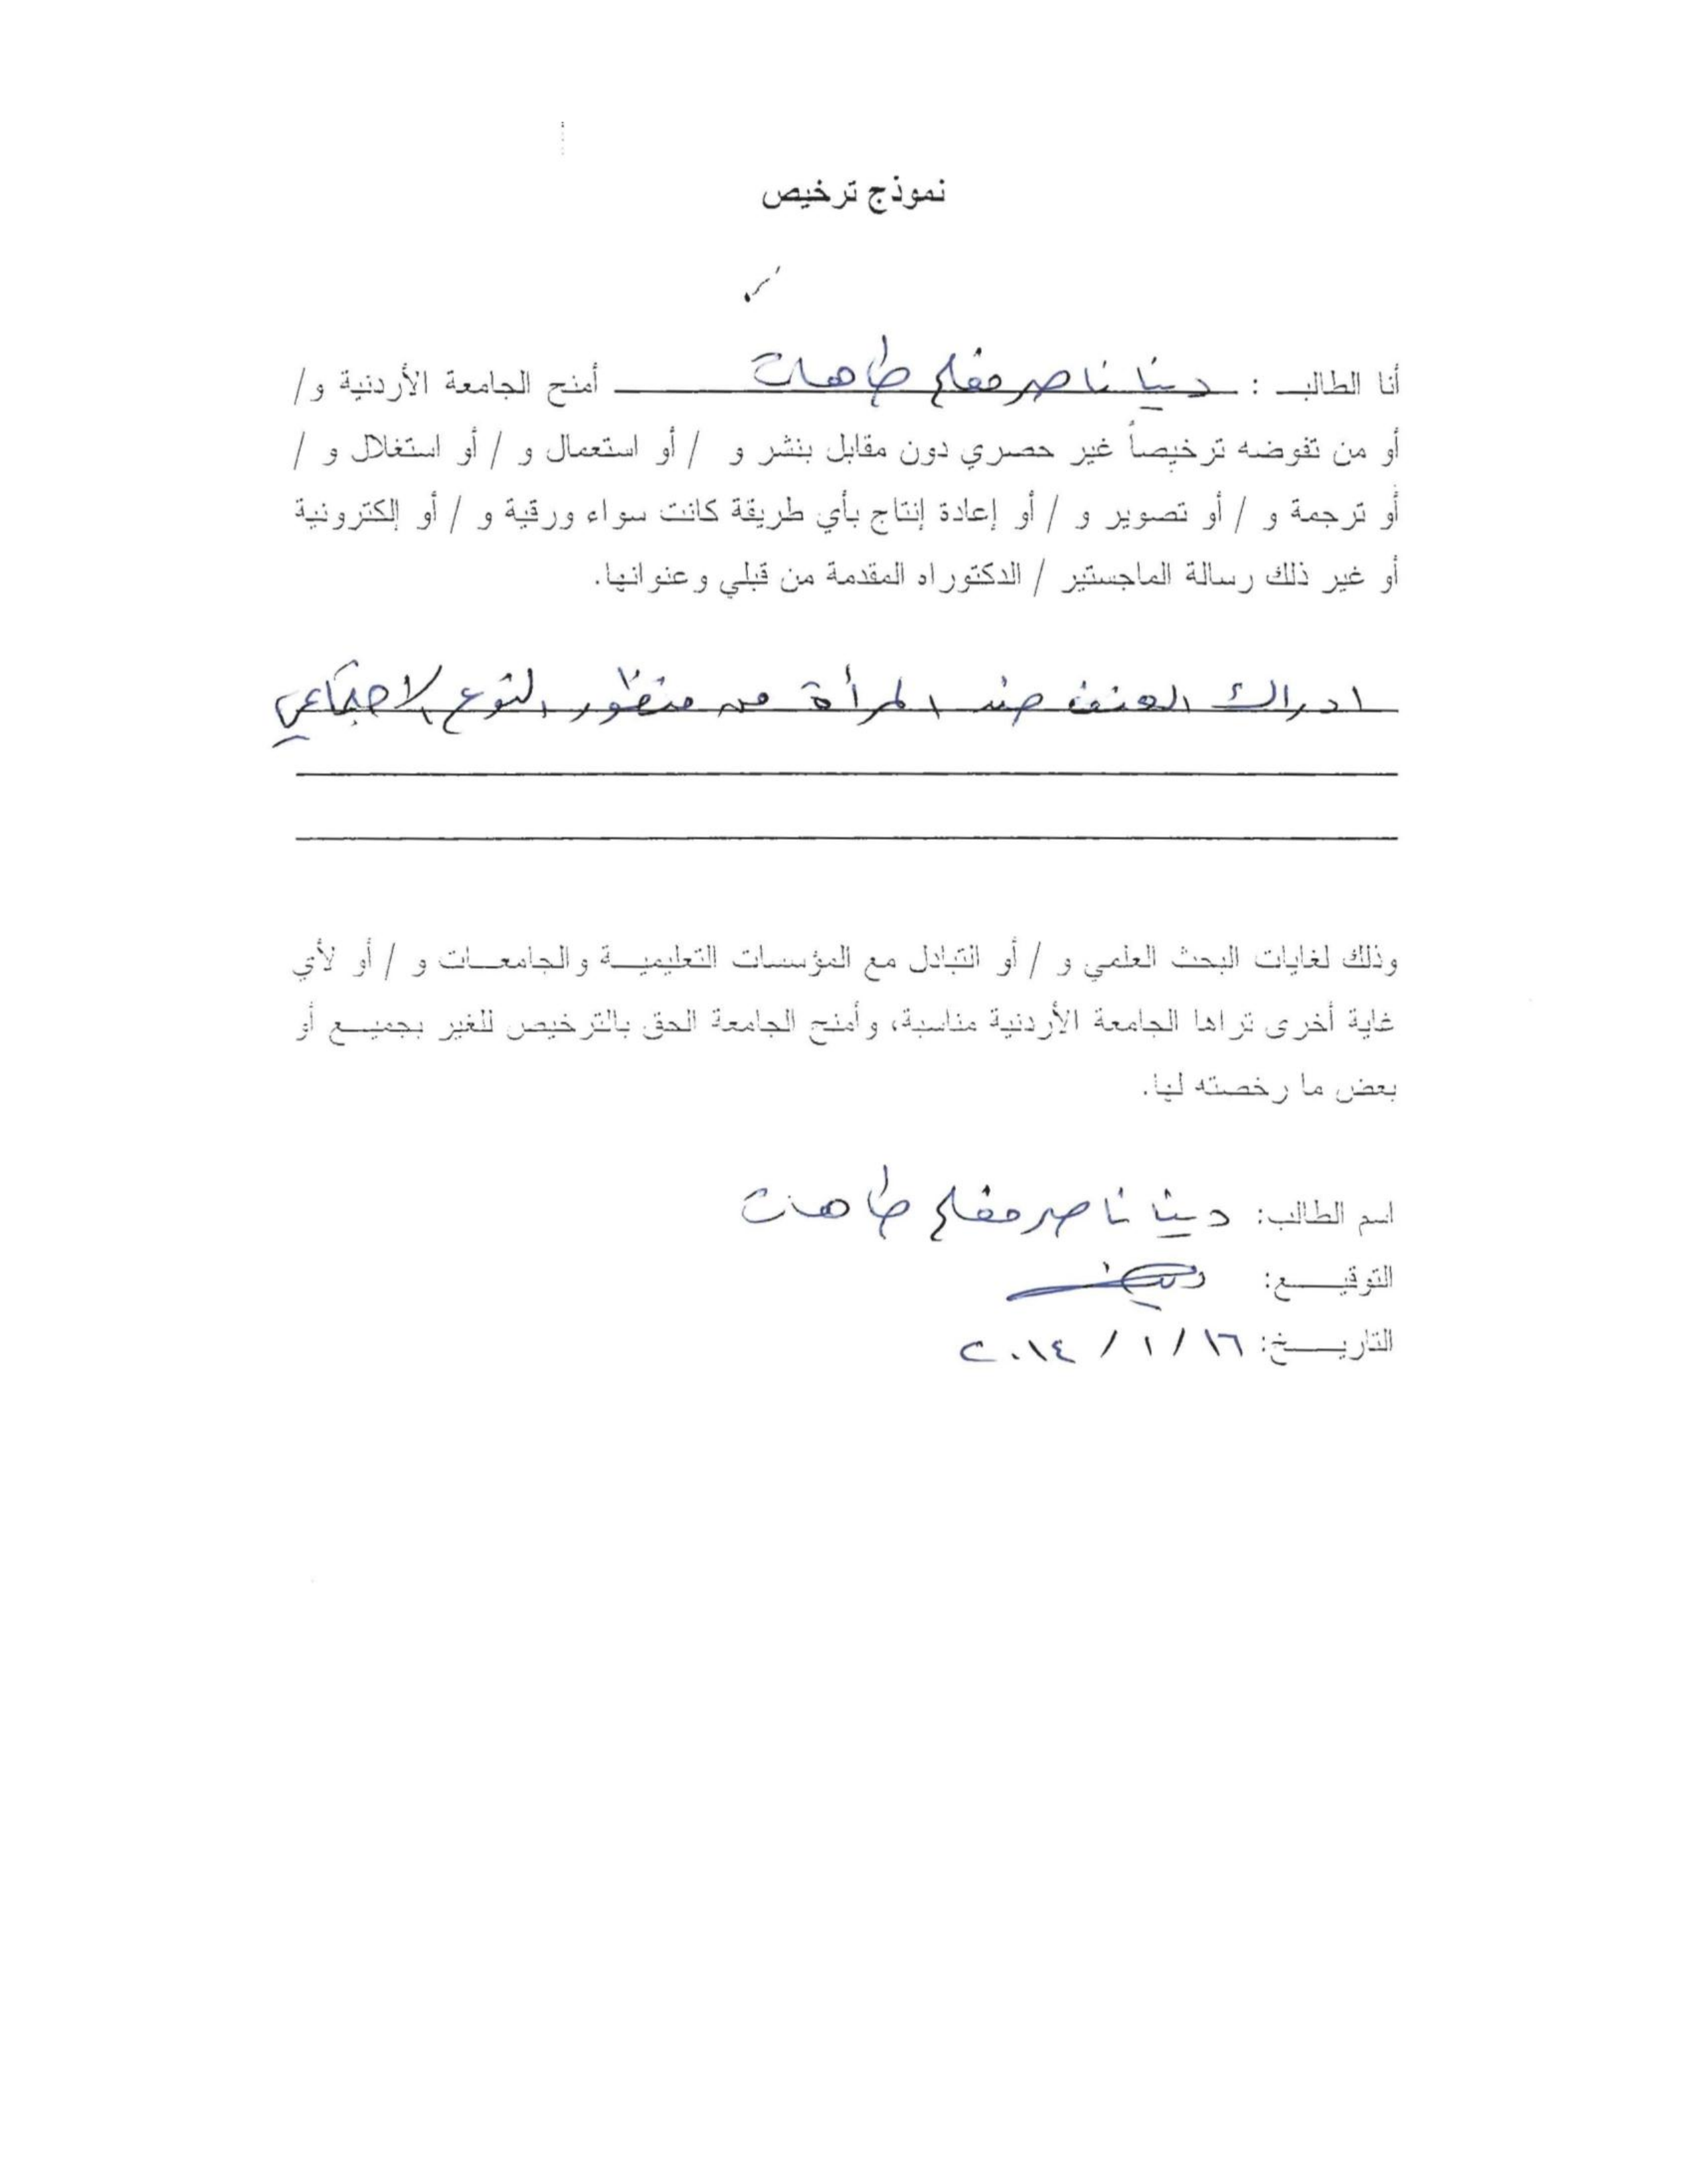 نموذج ترخيص
أنا الطالب : دينا ناصر مفلح طاهات أمنح الجامعة الأردنية و/
أو من تفوضه ترخيصاً غير حصري دون مقابل بنشر و / أو استعمال و / أو استغلال و /
أو ترجمة و / أو تصوير و / أو إعادة إنتاج بأي طريقة كانت سواء ورقية و / أو إلكترونية
أو غير ذلك رسالة الماجستير / الدكتوراه المقدمة من قبلي وعنوانها.
ادراك العنف ضد المرأة من منظور النوع الاجتماعي
وذلك لغايات البحث العلمي و / أو التبادل مع المؤسسات التعليمية والجامعات و / أو لأي
غاية أخرى تراها الجامعة الأردنية مناسبة، وأمنح الجامعة الحق بالترخيص للغير بجميع أو
بعض ما رخصته لها.
اسم الطالب: دينا ناصر مفلح طاهات
التوقيع:
التاريخ: ١٦ / ١ / ٢٠١٤